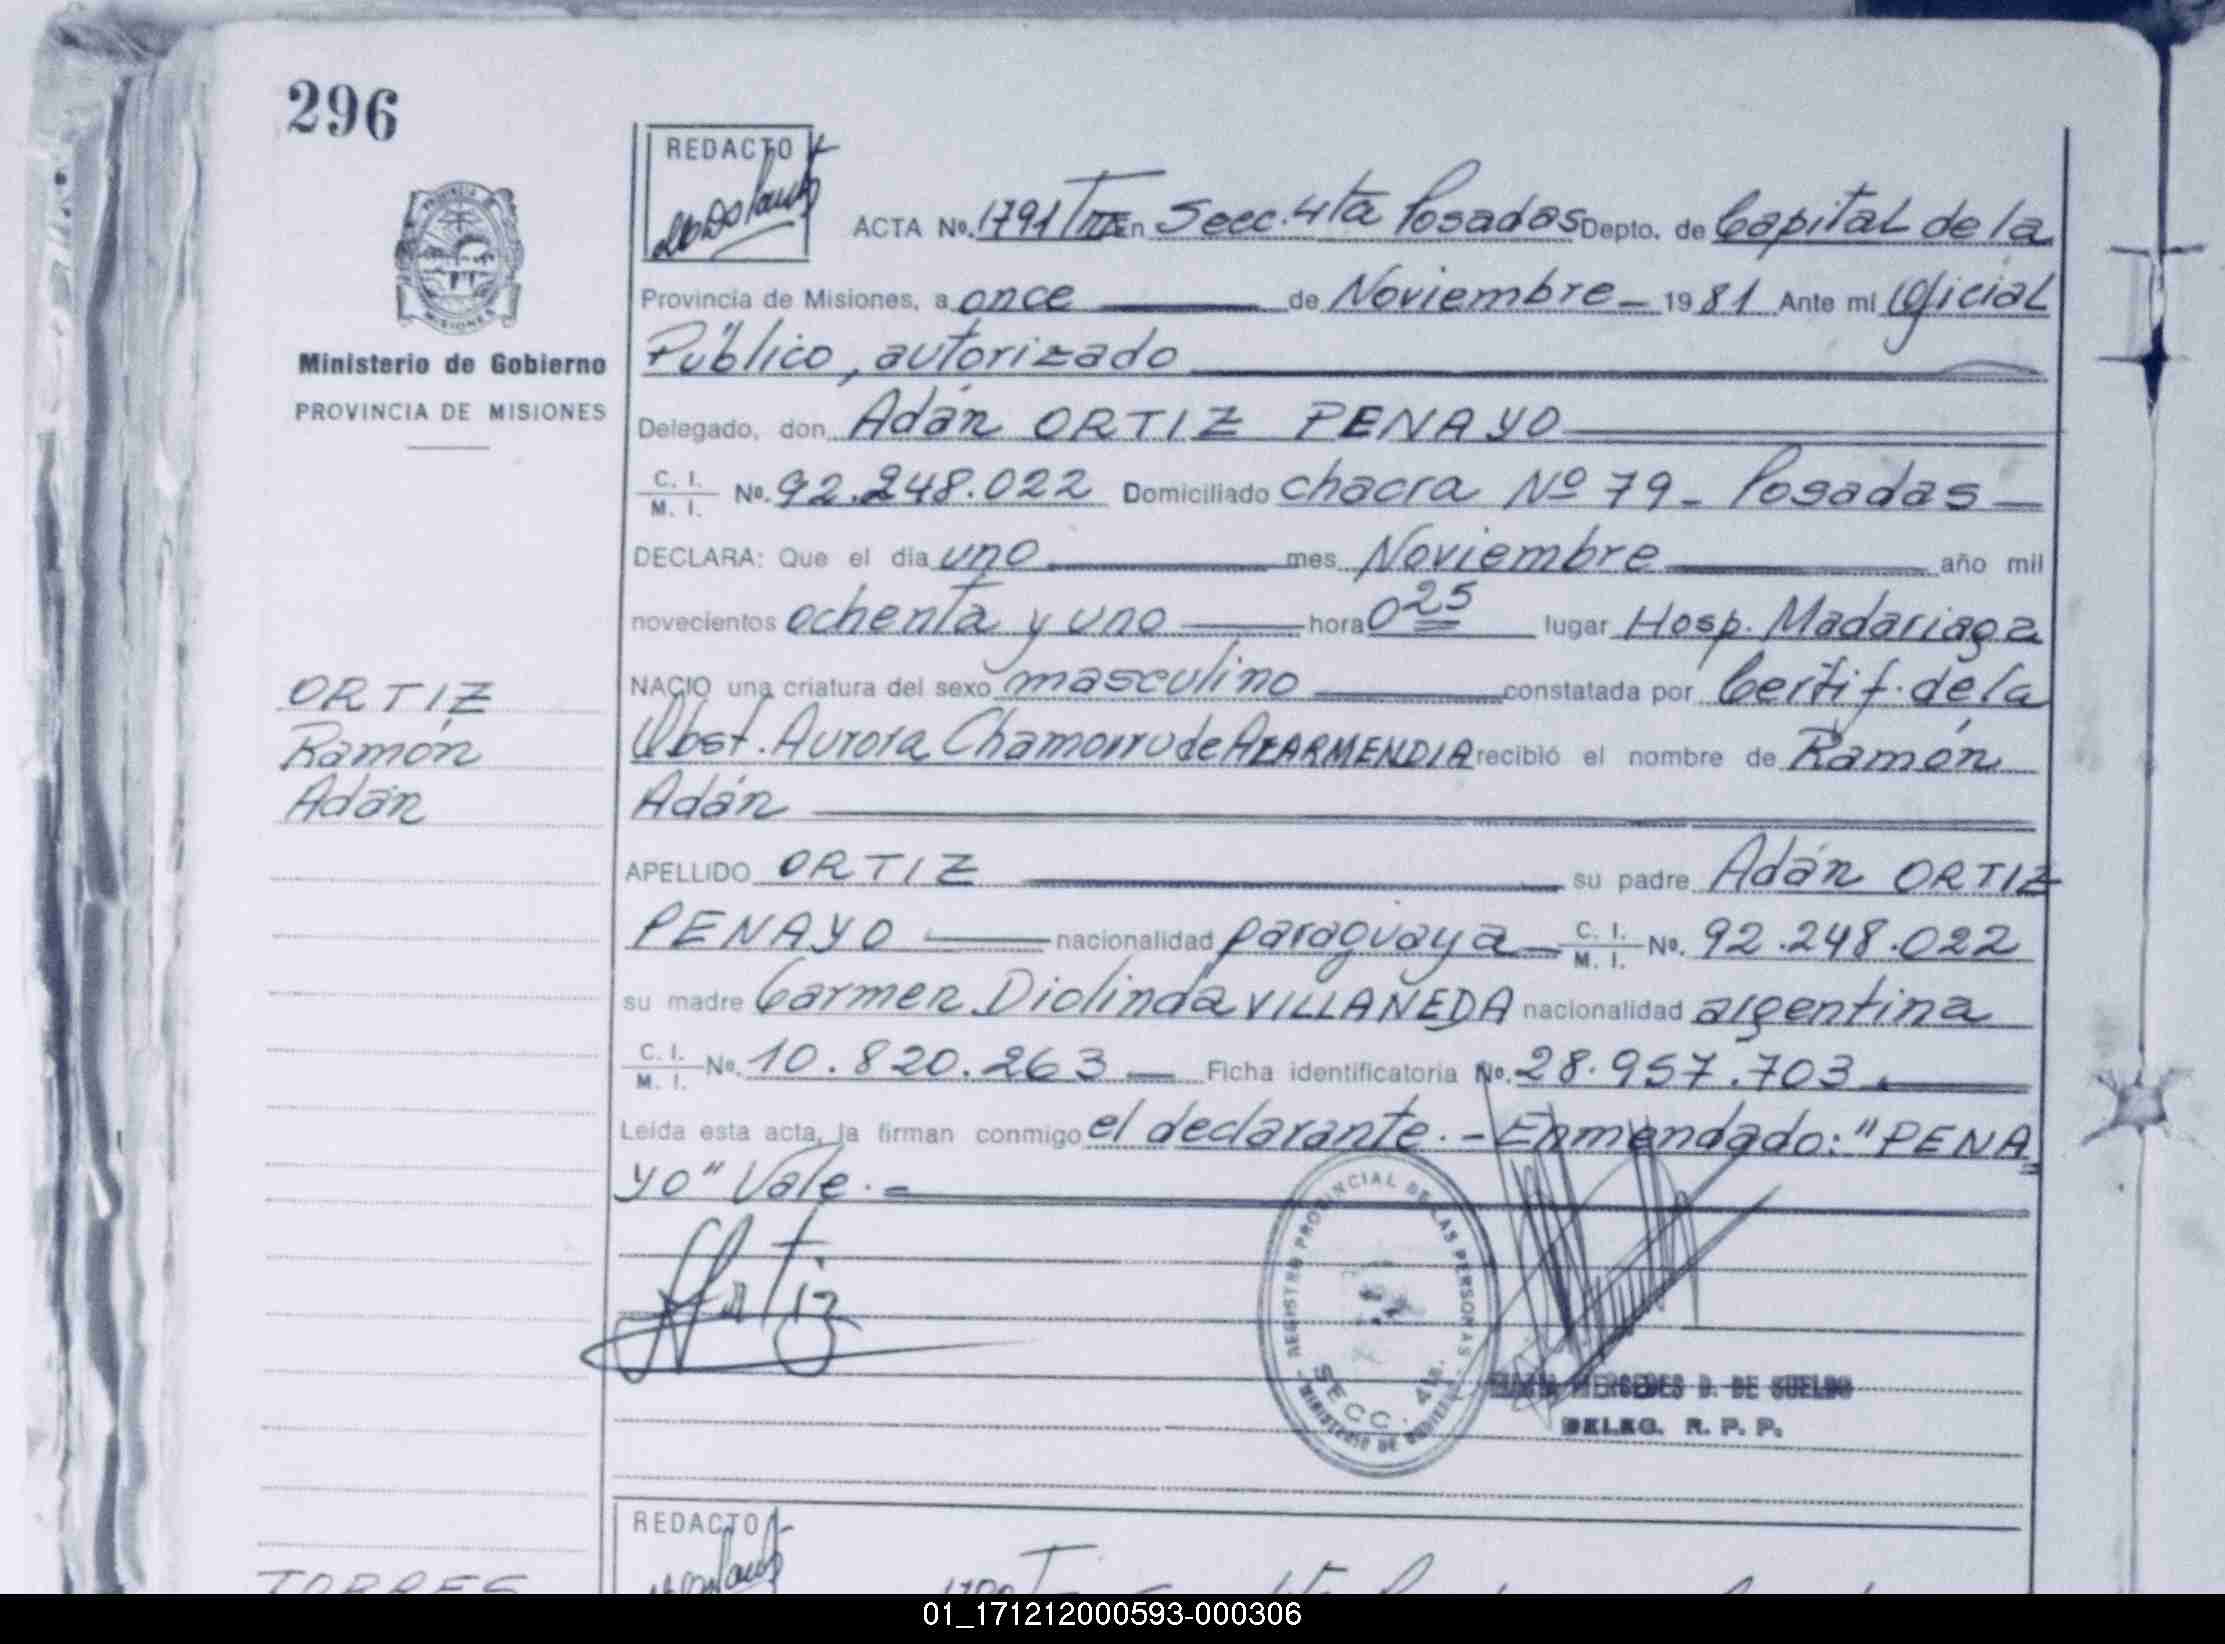 296
REDACTO
ACTA No. 1791 T III En Secc. 4ta Posadas Depto. de Capital de la
Provincia de Misiones, a once de Noviembre 1981 Ante mi Oficial
Público, autorizado
Ministerio de Gobierno
PROVINCIA DE MISIONES
Delegado, don Adán ORTIZ PENAYO
C. I. M. I. No. 92.248.022 Domiciliado chacra Nº 79 - Posadas -
DECLARA: Que el dia uno mes Noviembre año mil
novecientos ochenta y uno hora 0 25 lugar Hosp. Madariaga
NACIO una criatura del sexo masculino constatada por Certif. de la
Obst. Aurora Chamorro de AZARMENDIA recibió el nombre de Ramón
Adán
ORTIZ
Ramón
Adán
APELLIDO ORTIZ su padre Adán ORTIZ
PENAYO nacionalidad paraguaya C. I. M. I. No. 92.248.022
su madre Carmen Diolinda VILLAÑEDA nacionalidad argentina
C. I. M. I. No. 10.820.263 Ficha identificatoria No. 28.957.703
Leida esta acta, la firman conmigo el declarante. - Enmendado: "PENA
YO" Vale. -
Ortiz
REGISTRO PROVINCIAL DE LAS PERSONAS
SECC. 4ta.
MINISTERIO DE GOBIERNO
MERCEDES D. DE SUELDO
DELEG. R. P. P.
REDACTO
TORRES
01_171212000593-000306